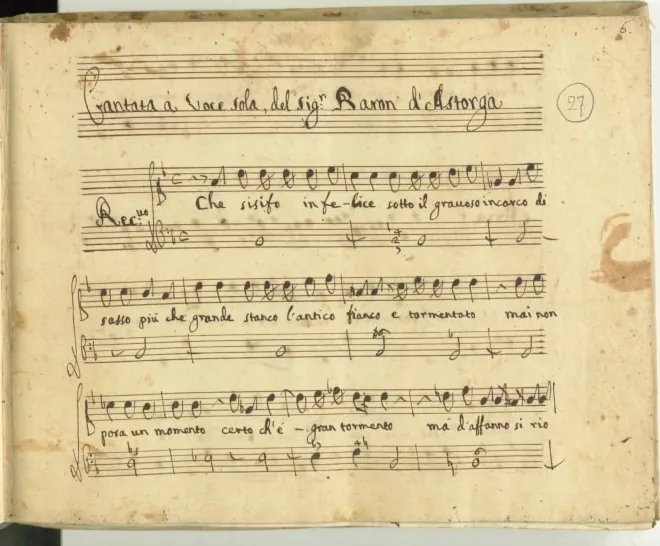 6
Cantata à Voce sola, del sigʳ Baron d'Astorga
27
Rec:ᵛᵒ
Che sisifo infe-lice sotto il grauoso incarco di
sasso più che grande stanco l'antico fianco e tormentato mai non
posa un momento certo ch'é - gran tormento ma d'affanno si rio